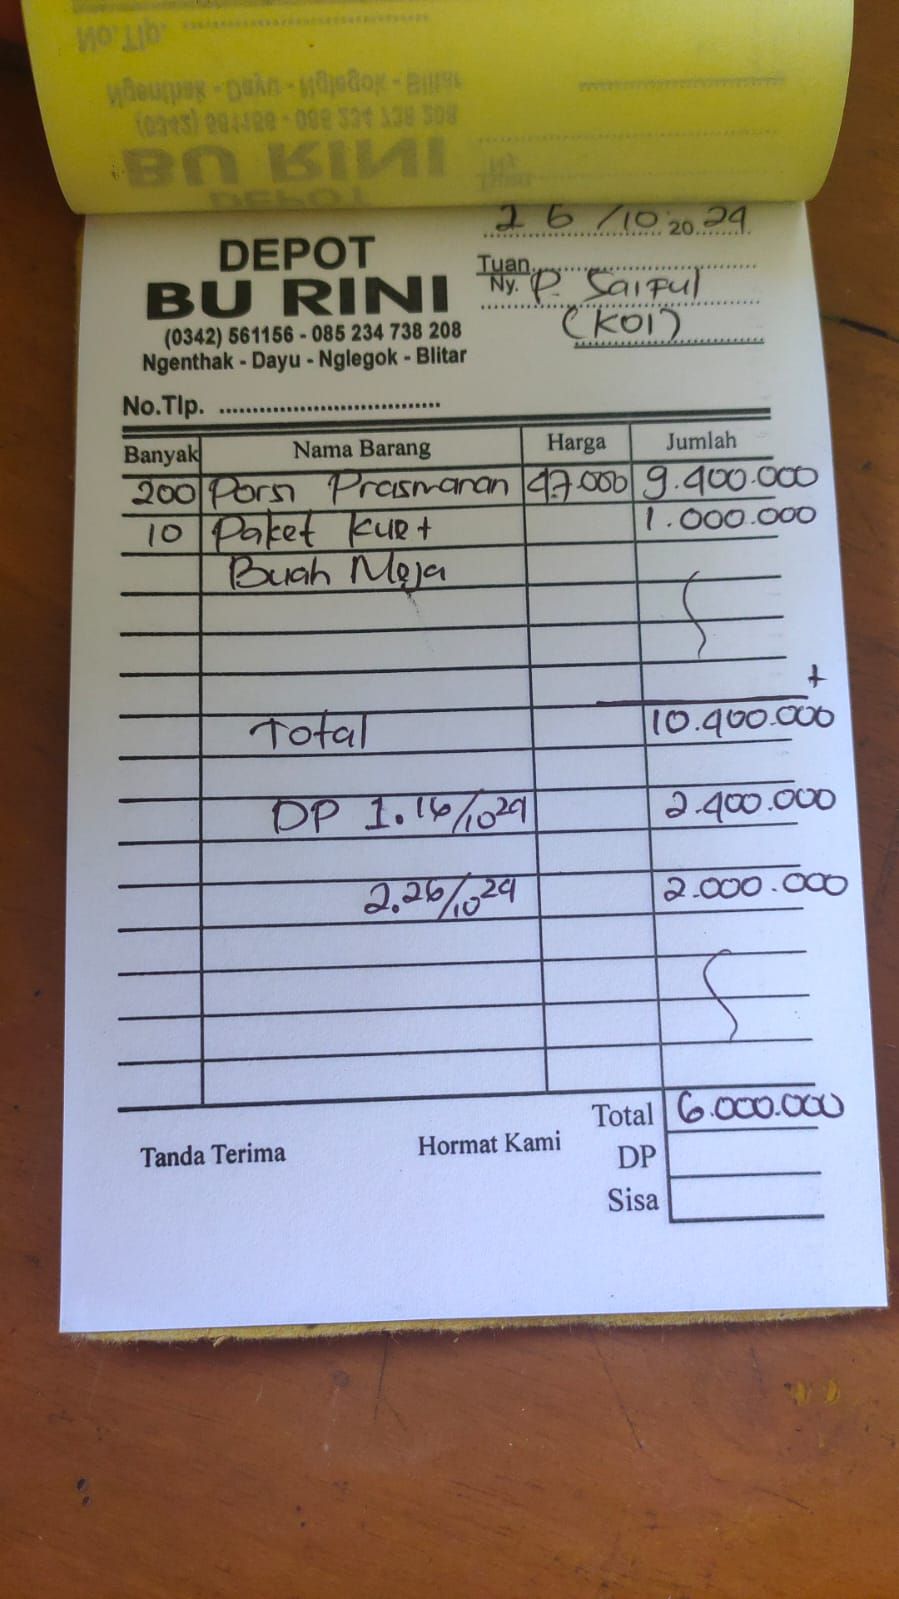 No. Tlp. ........................
Ngenthak - Dayu - Nglegok - Blitar
(0342) 561156 - 085 234 738 208
BU RINI
DEPOT
26/10 2024
DEPOT
BU RINI
(0342) 561156 - 085 234 738 208
Ngenthak - Dayu - Nglegok - Blitar
Tuan
Ny. P. Saiful
(KOI)
No.Tlp. .................................
Banyak Nama Barang Harga Jumlah
200 Porsi Prasmanan 47.000 9.400.000
10 Paket Kue + 1.000.000
Buah Meja
+
Total 10.400.000
DP 1. 16/10 24 2.400.000
2. 26/10 24 2.000.000
Total 6.000.000
Tanda Terima Hormat Kami DP
Sisa